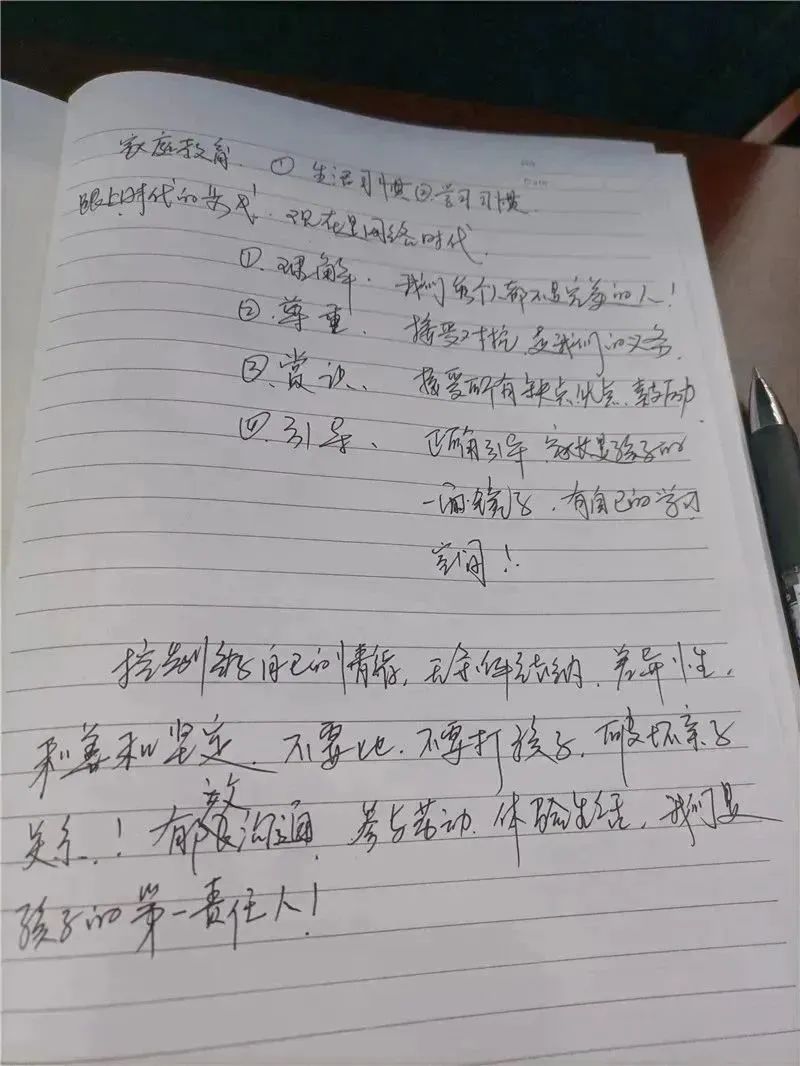 家庭教育. ① 生活习惯 ②学习习惯.
跟上时代的步伐. 现在是网络时代.
①. 理解. 我们每个人都不是完美的人!
②. 尊重. 接受对抗 是我们的义务.
③. 赏识. 接受所有缺点优点. 鼓励.
四. 引导. 正确引导 家长是孩子的
一面镜子. 有自己的学习
空间!
控制好自己的情绪, 无条件接纳. 差异性,
和善和坚定. 不要比. 不要打孩子. 破坏亲子
关系.! 有效沟通. 参与劳动. 体验生活, 我们是
孩子的第一责任人!